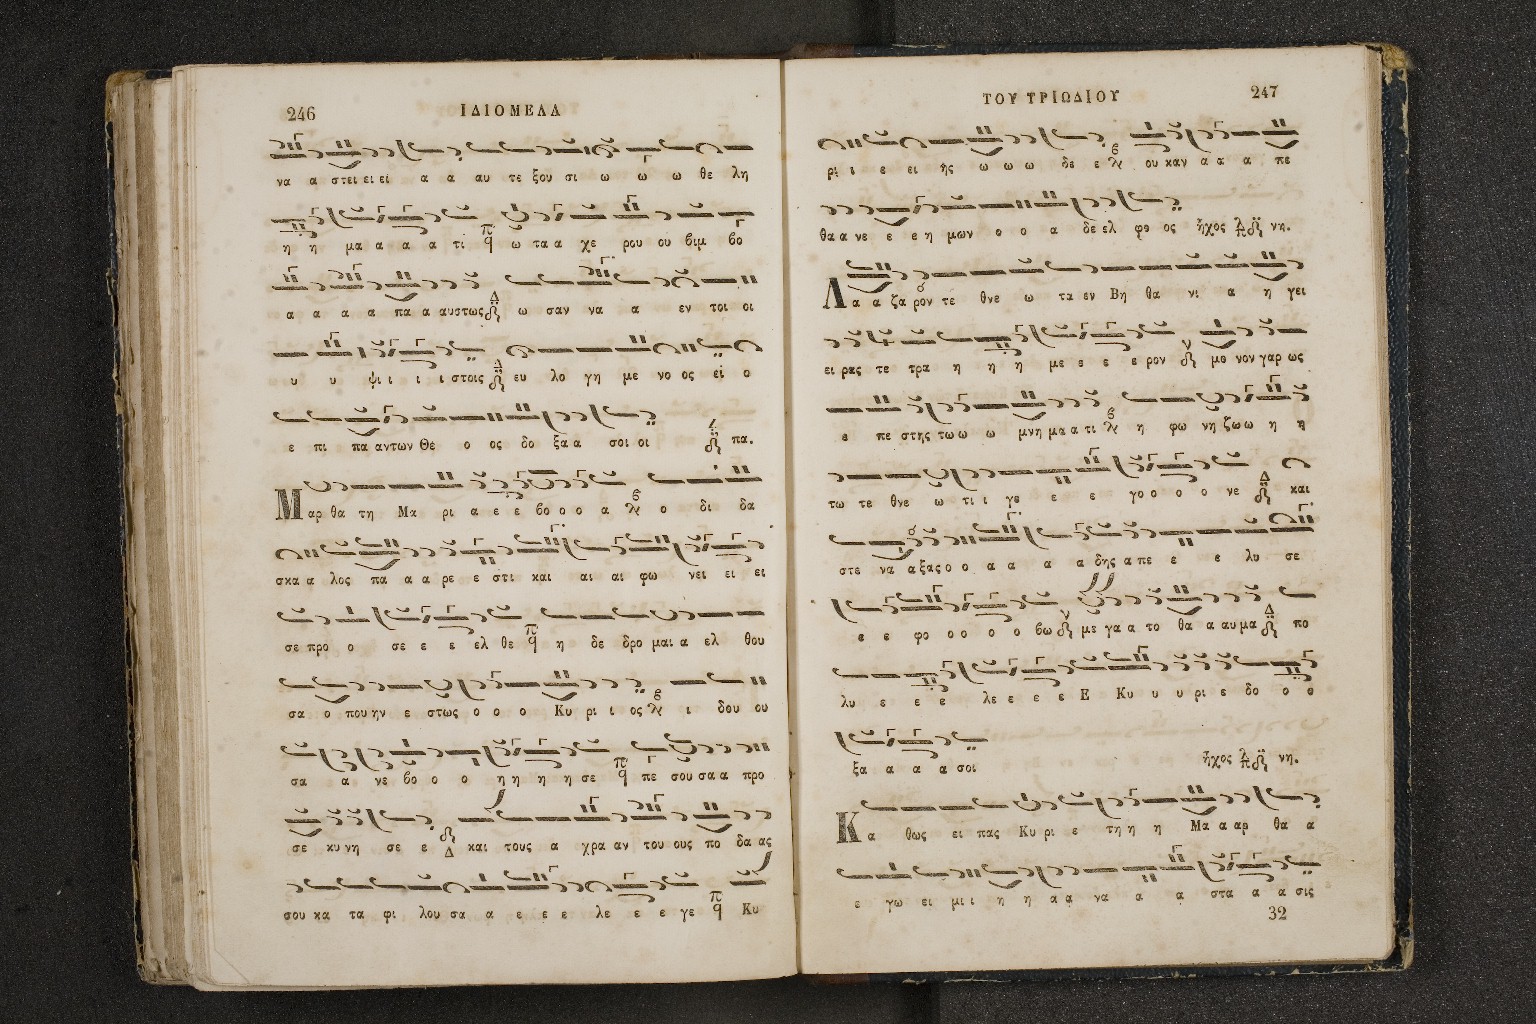 246 ΙΔΙΟΜΕΛΑ
να α στει ει ει α α αυ τε ξου σι ω ω ω θε λη
η η μα α α α τι π ϥ ω τα α χε ρου ου βιμ βο
α α α α πα α αυστως Δ ω σαν να α εν τοι οι
υ υ ψι ι ι ι στοις Δ ευ λο γη με νο ος εἰ ο
ε πι πα αντων Θε ο ος δο ξα α σοι οι πα.
Μαρ θα τη Μα ρι α ε ε βο ο ο α ο δι δα
σκα α λος πα α α ρε ε στι και αι αι φω νει ει ει
σε προ ο σε ε ε ελ θε π ϥ η δε δρο μαι α ελ θου
σα ο που ην ε στως ο ο ο Κυ ρι ι ος ι δου ου
σα α νε βο ο ο η η η η σε π ϥ πε σου σα α προ
σε κυ νη σε ε Δ και τους α χρα αν του ους πο δα ας
σου κα τα φι λου σα α ε ε ε λε ε ε γε π ϥ Κυ
ΤΟΥ ΤΡΙΩΔΙΟΥ 247
ρι ι ε ει ἡς ω ω ω δε ε ου καν α α α πε
θα α νε ε ε η μων ο ο α δε ελ φο ος ἦχος νη.
Λα α ζα ρον τε θνε ω τα εν Βη θα νι α η γει
ει ρας τε τρα η η η με ε ε ε ρον μο νον γαρ ως
ε πε στης τω ω ω μνη μα α τι η φω νη ζω ω η η
τω τε θνε ω τι ι γε ε ε γο ο ο ο νε Δ και
στε να α ξας ο ο α α α α δης α πε ε ε λυ σε
ε ε φο ο ο ο ο βω με γα α το θα α αυ μα Δ πο
λυ ε ε ε λε ε ε ε Ε Κυ υ υ ρι ε δο ο ο
ξα α α α σοι ἦχος νη.
Κα θως ει πας Κυ ρι ε τη η η Μα α αρ θα α
ε γω ει μι ι η η α α να α α στα α α σις
32